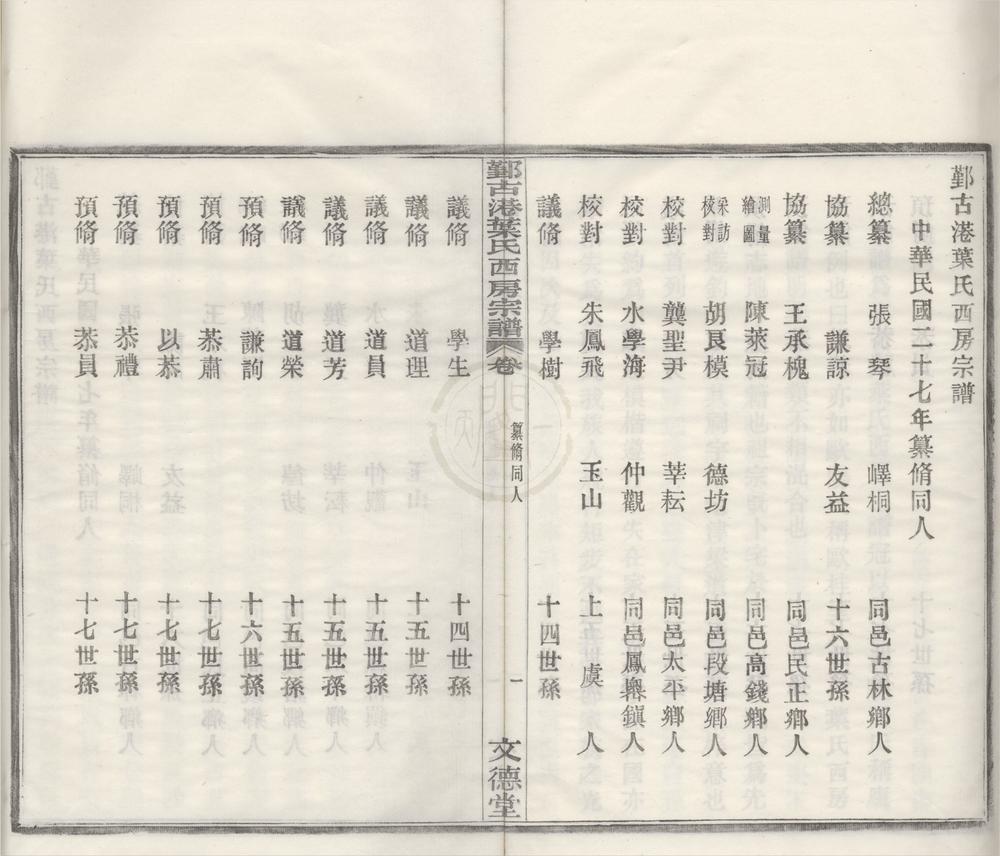 鄞古港葉氏西房宗譜
中華民國二十七年纂脩同人
總纂 張琴 嶧桐 同邑古林鄉人
協纂 謙諒 友益 十六世孫
協纂 王承槐 同邑民正鄉人
測量繪圖 陳萊冠 同邑高錢鄉人
采訪校對 胡艮模 德坊 同邑段塘鄉人
校對 龔聖尹 莘耘 同邑太平鄉人
校對 水學海 仲觀 同邑鳳嶴鎭人
校對 朱鳳飛 玉山 上虞人
議脩 學樹 十四世孫
鄞古港葉氏西房宗譜 卷 纂脩同人 一 文德堂
議脩 學生 十四世孫
議脩 道理 十五世孫
議脩 道員 十五世孫
議脩 道芳 十五世孫
議脩 道榮 十五世孫
預脩 謙訽 十六世孫
預脩 恭肅 十七世孫
預脩 以恭 十七世孫
預脩 恭禮 十七世孫
預脩 恭員 十七世孫